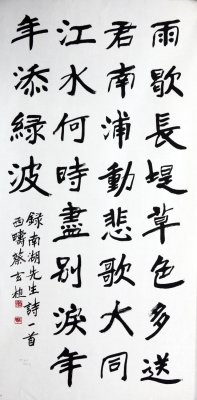 雨歇長堤草色多送
君南浦動悲歌大同
江水何時盡別淚年
年添綠波
錄南湖先生詩一首
西疇蔡玄